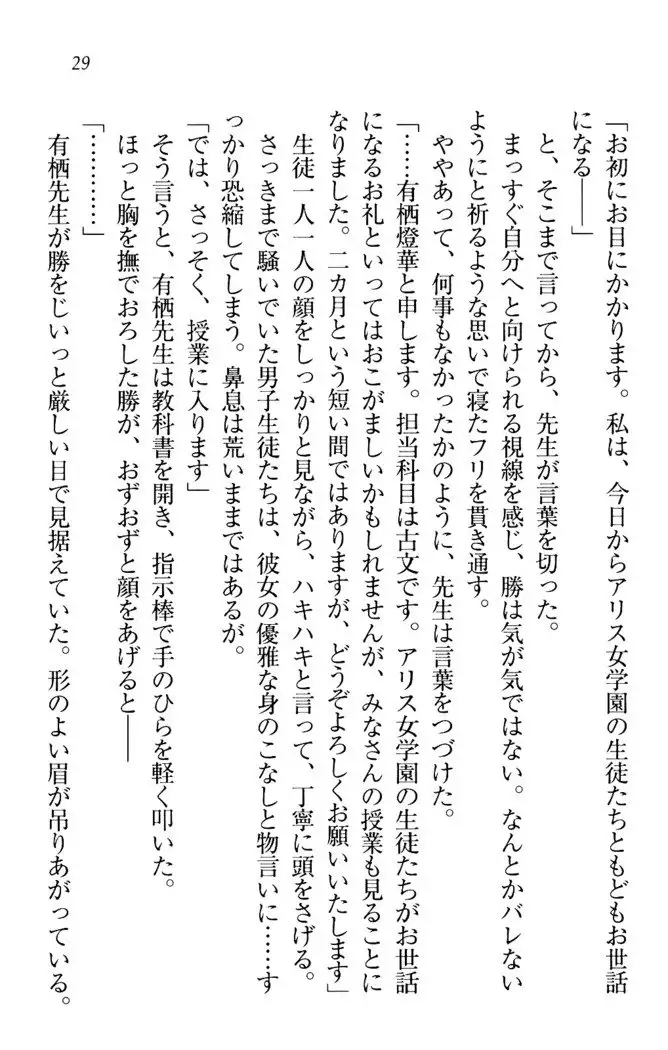 29
「お初にお目にかかります。私は、今日からアリス女学園の生徒たちともどもお世話
になる――」
と、そこまで言ってから、先生が言葉を切った。
まっすぐ自分へと向けられる視線を感じ、勝は気が気ではない。なんとかバレない
ようにと祈るような思いで寝たフリを貫き通す。
ややあって、何事もなかったかのように、先生は言葉をつづけた。
「……有栖燈華と申します。担当科目は古文です。アリス女学園の生徒たちがお世話
になるお礼といってはおこがましいかもしれませんが、みなさんの授業も見ることに
なりました。二カ月という短い間ではありますが、どうぞよろしくお願いいたします」
生徒一人一人の顔をしっかりと見ながら、ハキハキと言って、丁寧に頭をさげる。
さっきまで騒いでいた男子生徒たちは、彼女の優雅な身のこなしと物言いに……す
っかり恐縮してしまう。鼻息は荒いままではあるが。
「では、さっそく、授業に入ります」
そう言うと、有栖先生は教科書を開き、指示棒で手のひらを軽く叩いた。
ほっと胸を撫でおろした勝が、おずおずと顔をあげると――
「…………」
有栖先生が勝をじいっと厳しい目で見据えていた。形のよい眉が吊りあがっている。